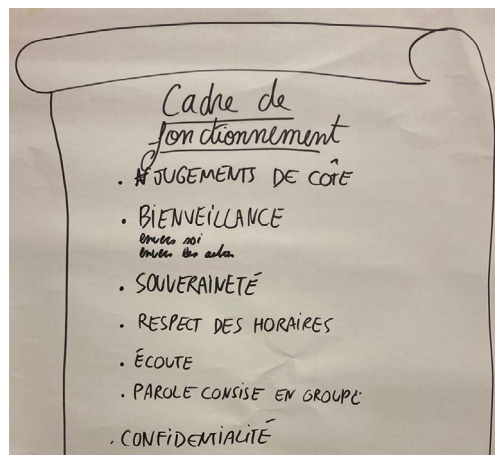 Cadre de
fonctionnement
. JUGEMENTS DE CÔTÉ
. BIENVEILLANCE
envers soi
envers les autres
. SOUVERAINETÉ
. RESPECT DES HORAIRES
. ÉCOUTE
. PAROLE CONSISE EN GROUPE
. CONFIDENTIALITÉ